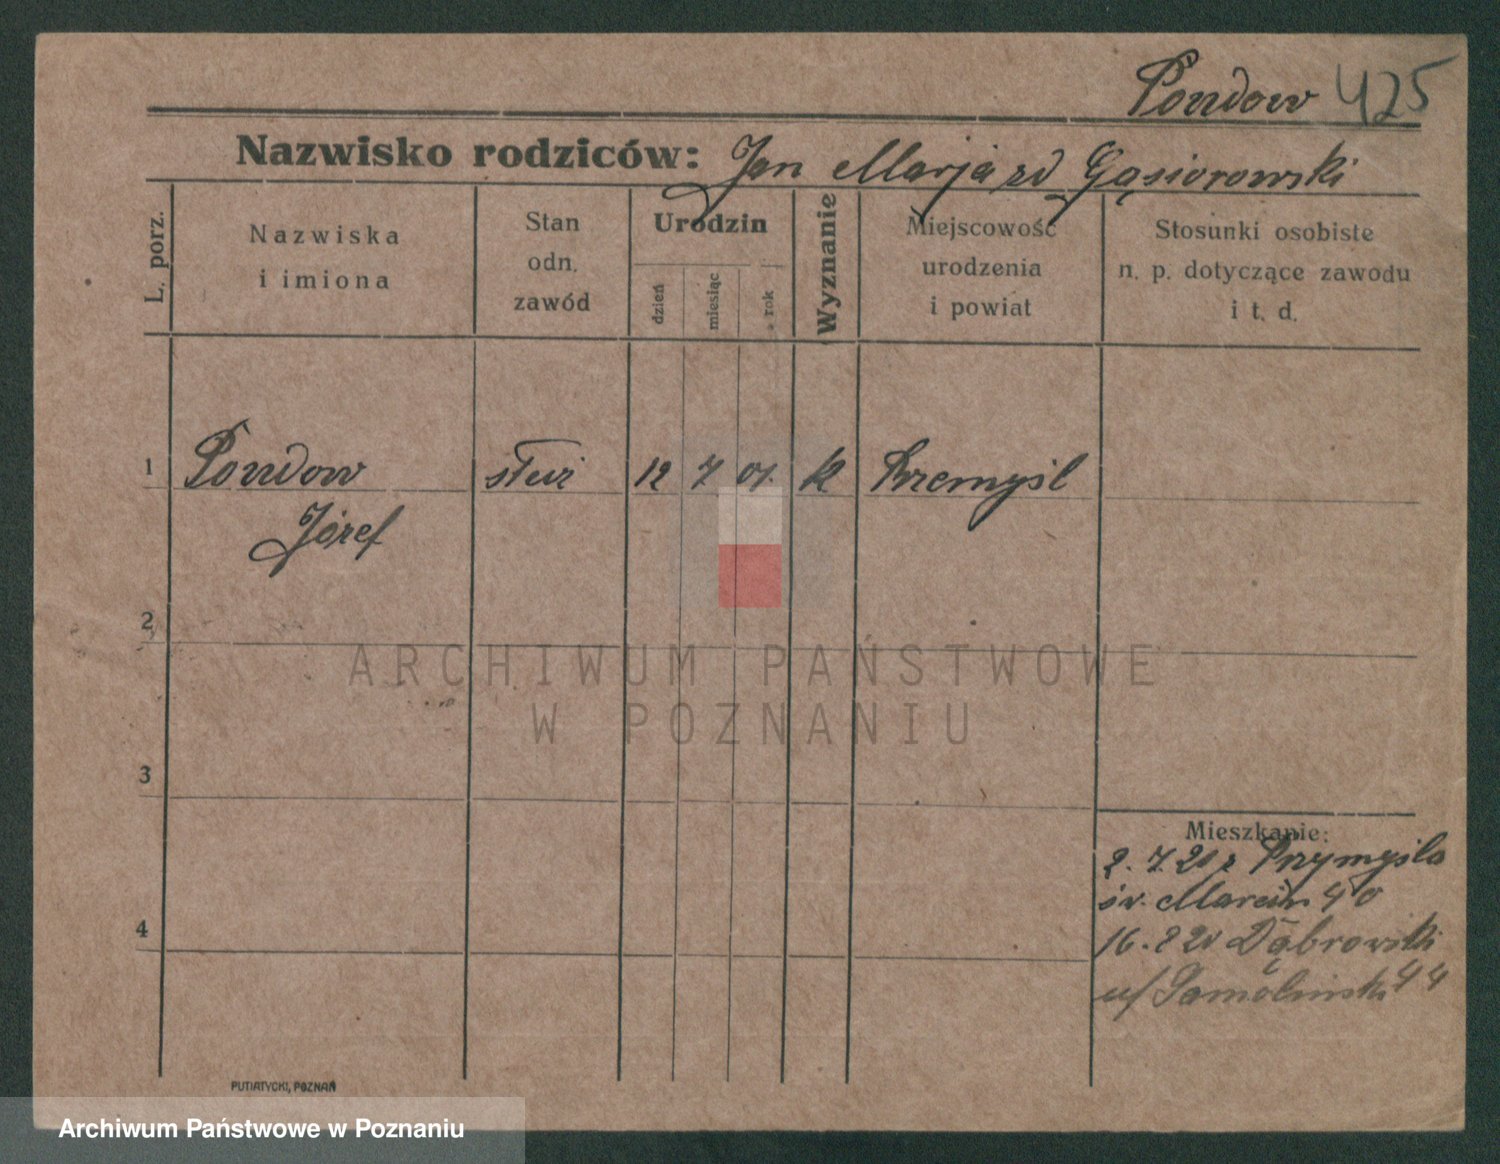 Pondow 425
Nazwisko rodziców: Jan Marja zd Gąsiorowski
L. porz.
Nazwiska
i imiona
Stan
odn.
zawód
Urodzin
dzień
miesiąc
rok
Wyznanie
Miejscowość
urodzenia
i powiat
Stosunki osobiste
n. p. dotyczące zawodu
i t. d.
1 Pondow 12 7 01. k Przemyśl
Józef
2
3
4
Mieszkanie:
2. 7. 20 z Przymyśla
św. Marcin 40
16. 8 20 Dąbrowski
44
PUTIATYCKI, POZNAŃ
ARCHIWUM PAŃSTWOWE
W POZNANIU
Archiwum Państwowe w Poznaniu